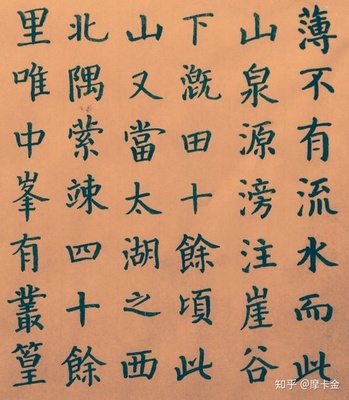 薄不有流水而此
山泉源滂注崖谷
下溉田十餘頃此
山又當太湖之西
北隅縈竦四十餘
里唯中峯有叢篁
知乎 @摩卡金